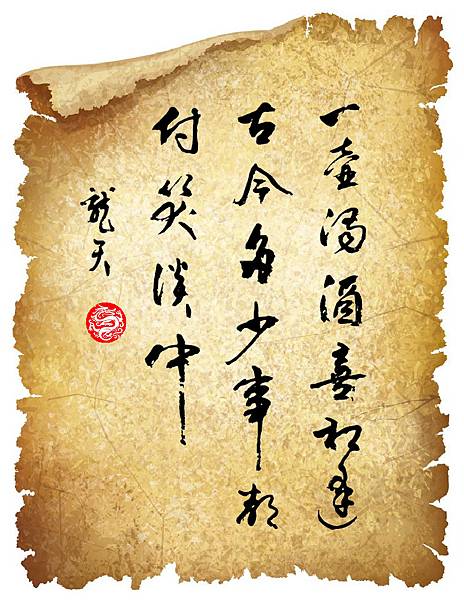 一壶浊酒喜相逢
古今多少事都
付笑谈中
龍天